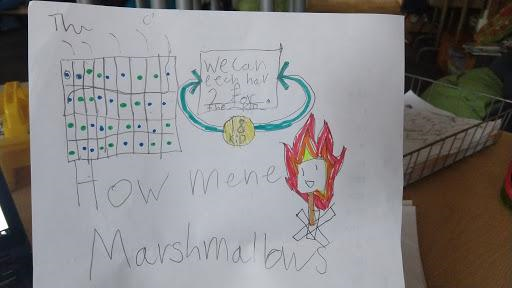 The
We can
each hav
2 for.
How mene
Marshmallows